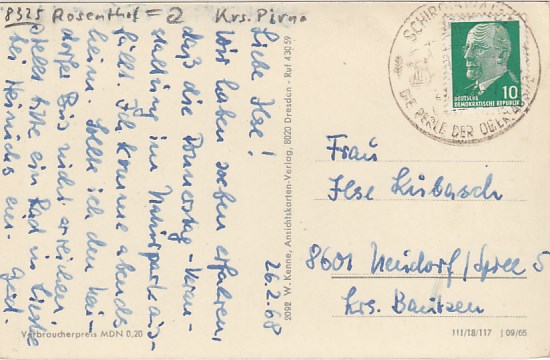 8325 Rosenthal=2 Krs. Pirna
26.2.68
Liebe Ilse!
Wir haben soeben erfahren,
daß die Donnerstag-Veran-
staltung im Naturpark aus-
fällt. Ich komme abends
heim. Sollte ich den Neu-
dorfer Bus nicht erreichen,
stelle bitte ein Rad in
bei Heinrichs ein.
Gerd.
Verbraucherpreis MDN 0,20
2092 W. Kenne, Ansichtskarten-Verlag, 8020 Dresden - Ruf 43059
DIE PERLE DER
10
DEUTSCHE
DEMOKRATISCHE REPUBLIK
Frau
Ilse Kubasch
8601 Neudorf/Spree 5
Krs. Bautzen
111/18/117 | 09/65